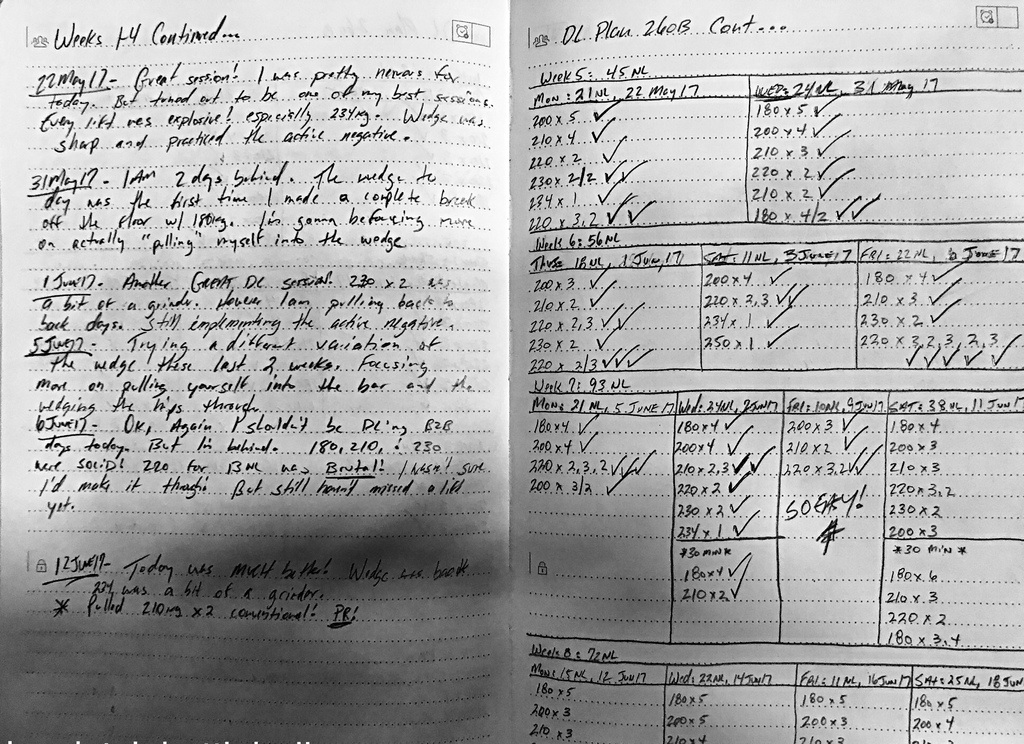 Weeks 1-4 Continued...
22 May 17- Great session! I was pretty nervous for
today. But turned out to be one of my best sessions.
Every lift was explosive! especially 234kg. Wedge was
sharp and practiced the active negative.
31 May 17- I AM 2 days behind. The wedge to
day was the first time I made a complete break
off the floor w/ 180kg. I'm gonna be focusing more
on actually "pulling" myself into the wedge
1 Jun 17- Another GREAT DL session! 230 x 2 was
a bit of a grinder. However I am pulling back to
back days. Still implementing the active negative.
5 Jun 17- Trying a different variation of
the wedge these last 2 weeks. Focusing
more on pulling yourself into the bar and the
wedging the hips through.
6 June 17- OK, Again I shouldn't be DLing B2B
days today. But I'm behind. 180, 210, & 230
were SOLID! 220 for 13 NL was Brutal! I wasn't sure
I'd make it though! But still haven't missed a lift
yet.
12 June 17- Today was much better! Wedge was back
234 was a bit of a grinder.
* Pulled 210kg x2 conventional! PR!
DL Plan 260B Cont...
Week 5: 45 NL
Mon: 21 NL, 22 May 17
200 x 5 ✓
210 x 4 ✓
220 x 2 ✓
230 x 2/2 ✓✓
234 x 1 ✓
220 x 3,2 ✓✓
WED: 24 NL, 31 May 17
180 x 5 ✓
200 x 4 ✓
210 x 3 ✓
220 x 2 ✓
210 x 2 ✓
180 x 4/2 ✓✓
Week 6: 56 NL
Thurs 18 NL, 1 Jun, 17
200 x 3 ✓
210 x 2 ✓
220 x 2,3 ✓✓
230 x 2 ✓
220 x 2/3 ✓✓✓
SAT: 11 NL, 3 June 17
200 x 4 ✓
220 x 2,3 ✓✓
234 x 1 ✓
250 x 1 ✓
FRI: 22 NL, June 17
180 x 4 ✓
210 x 3 ✓
230 x 2 ✓
220 x 3,2,3,2,3
✓✓✓✓✓
Week 7: 93 NL
Mon: 21 NL, 5 June 17
180 x 4 ✓
200 x 4 ✓
220 x 2,3,2 ✓✓✓
200 x 3/2 ✓✓
Wed: 24 NL, Jun 17
180 x 4 ✓
200 x 4 ✓
210 x 2,3 ✓✓
220 x 2 ✓
230 x 2 ✓
234 x 1 ✓
*30 MIN*
180 x 4 ✓
210 x 2 ✓
FRI: 10 NL, 9 Jun 17
200 x 3 ✓
210 x 2 ✓
220 x 3,2 ✓✓
SO EASY!
SAT: 38 NL, 11 Jun 17
180 x 4
200 x 3
210 x 3
220 x 3,2
230 x 2
200 x 3
*30 MIN*
180 x 6
210 x 3
220 x 2
180 x 3,4
Week 8: 72 NL
Mon: 15 NL, 12 Jun 17
180 x 5
200 x 3
210 x 3
Wed: 22 NL, 14 Jun 17
180 x 5
200 x 5
210 x 4
FRI: 11 NL, 16 Jun 17
180 x 5
200 x 3
210 x 3
SAT: 25 NL, 18 JUN
180 x 5
200 x 4